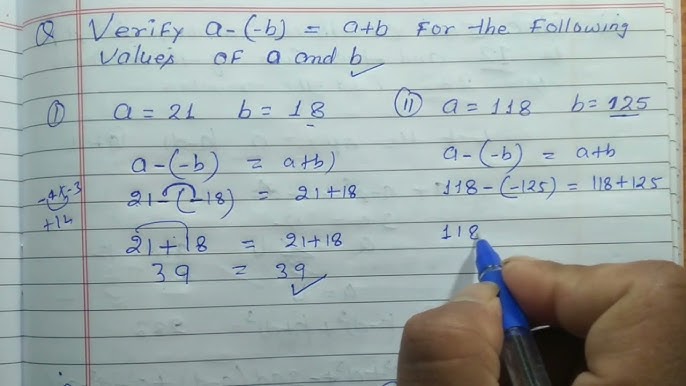 Q Verify a-(-b) = a+b For the Following
values of a and b
(I) a = 21 b = 18
a-(-b) = a+b)
21-(-18) = 21+18
21+18 = 21+18
39 = 39
-4x-3
+12
(II) a = 118 b = 125
a-(-b) = a+b
118-(-125) = 118+125
118